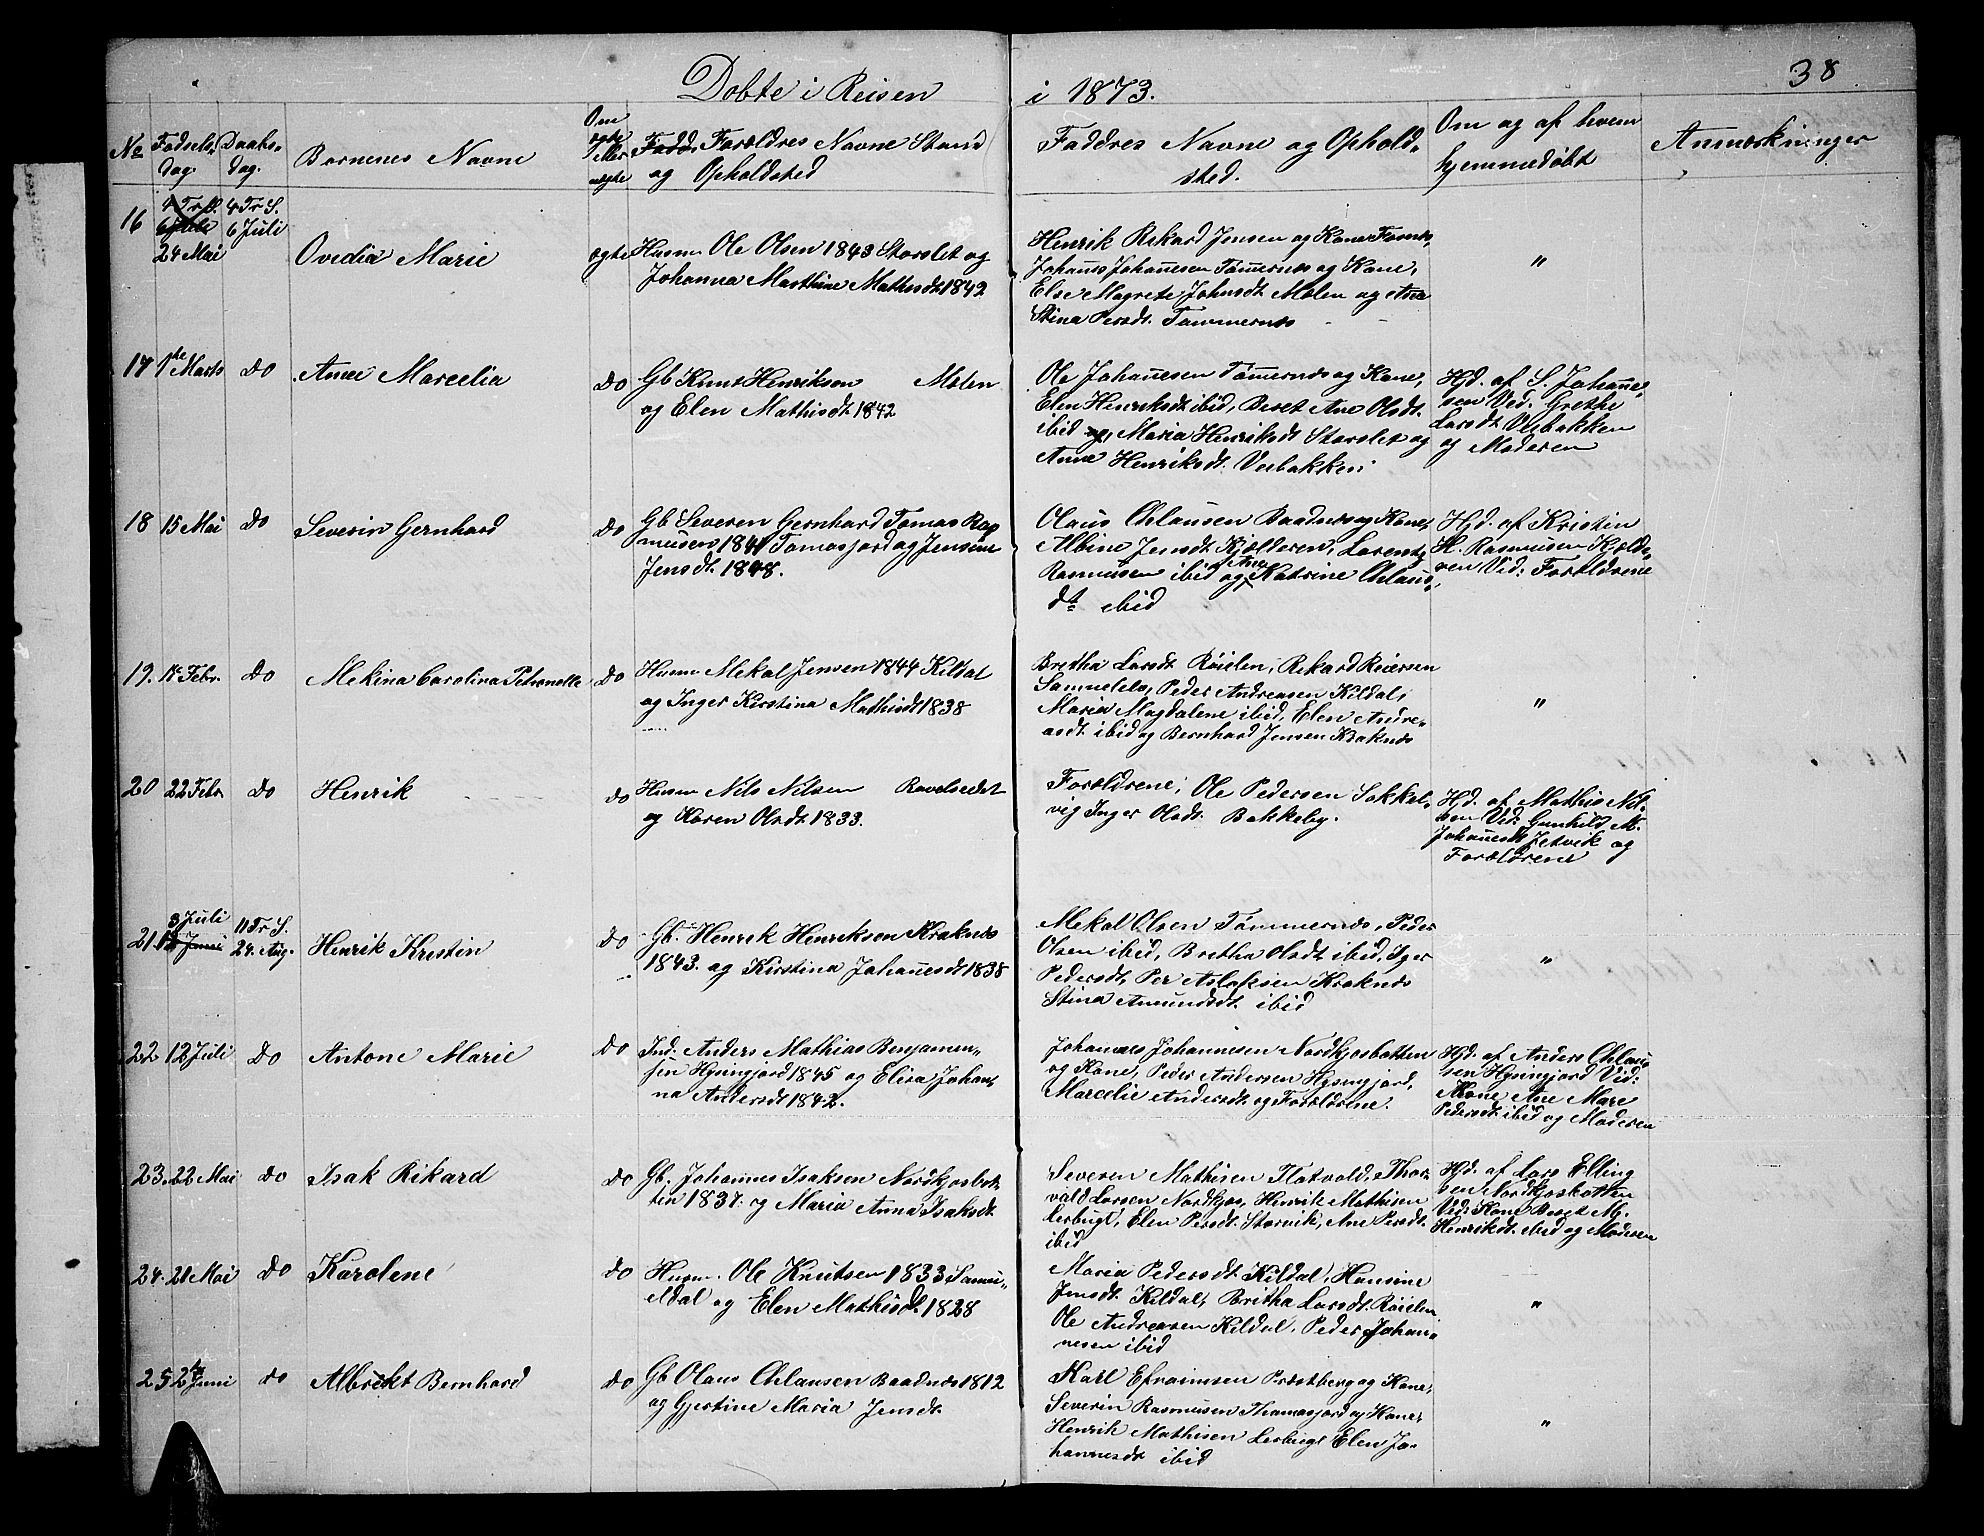 38
Døbte i Reisen i 1873.
No Fødsels Dag. Daabs- dag. Børnenes Navne Om ægte eller uægte Forældres Navne Stand og Opholdsted Faddres Navne og Ophold- sted. Om og af hvem hjemmedøbt Anmærkninger
16 24 Mai 4 Tr. S. 6 Juli Ovedia Marie ægte
Husm Ole Olsen 1843 Storslet og
Johanna Marthine Mathisdt 1842
Henrik Rikard Jensen og Kone
Johanes Johanesen Tømernæs og Kone,
Else Magrete Johnsdt. Molen og Ana
Stina Persdt. Tømmernæs
"
17 1te Marts Do Anne Marcelia Do
Gb Knut Henriksen Molen
og Elen Mathisdt. 1842
Ole Johanesen Tømernæs og Kone,
Elen Henriksdt ibid, Beret Ane Olsdt.
ibid, Maria Henriksdt Storslet og
Anne Henriksdt. Veibakken
Hjd. af S. Johane-
sen Ved. Grethe
Larsdt. Veibakken
og Moderen
18 15 Mai Do Severin Gernhard Do
Gb Severen Gernhard Tomas Ras
musen 1841 Tomasjord og Jensine
Jensdt. 1848.
Olaus Chlausen Baadnæs og Kone,
Albine Jensdt. Kjelderen, Lorents
Rasmusen ibid og Ane Katrine Chlaus-
dt ibid
Hjd. af Kristin
H. Rasmusen Kjelde-
ren Vid: Forældrene
19. Febr. Do Mekina Carolina Petronelle Do
Husm Mekal Jensen 1844 Kildal
og Inger Kirstina Mathisdt 1838
Bretha Larsdt. Røielen, Rekard Reiersen
Samuelelv, Peder Andreasen Kildal,
Maria Magdalene ibid, Elen Andre-
asdt. ibid og Bernhard Jensen Kraknæs
"
20 22 Febr Do Henrik Do
Husm Nils Nilsen Ravelseidet
og Karen Olsdt. 1833.
Forældrene, Ole Pedersen Sakkel-
vig Inger Olsdt. Bakkeby.
Hjd. af Mathis Nil-
sen Vid: Gunhild M.
Johanesdt Jetvik og
Forældrene
21 3 Juli 11 Tr. S. 24. Aug. Henrik Kristin Do
Gb. Henrek Henriksen Kraknæs
1843. og Kirstina Johanesdt 1838
Mekal Olsen Tømmernæs, Peder
Olsen ibid, Bretha Olsdt ibid, Iger
Pedersdt, Per Aslaksen Kraknæs
Stina Amundsdt. ibid
"
22 12 Juli Do Antone Marie Do
Ind: Anders Mathias Benjamen-
sen Hysingjord 1845 og Elisa Johan-
na Andersdt 1842.
Johannes Johannesen Nordkjosbotten
og Kone, Peder Andersen Hysingjord,
Marcelie Andersdt. og Forældrene.
Hjd. af Anders Chlau-
sen Hysingjord Vid:
Kone Ane Mare
Pedersdt ibid og Moderen
23. 22 Mai Do Isak Rikard Do
Gb. Johannes Isaksen Nordkjosbot-
ten 1837. og Maria Anna Isaksdt.
Severen Mathisen Flatvold, Thor-
vald Larsen Nordkjos, Henrik Mathisen
Lerbugt, Elen Persdt. Storvik, Ane Persdt.
ibid
Hjd. af Lars Elling
sen Nordkjosbotten
Vid: Kone Beret M.
Henriksdt ibid og Moderen
24. 21 Mai Do Karolene Do
Husm. Ole Knutsen 1833 Samu-
eldal og Elen Mathisdt. 1828
Maria Pedersdt. Kildal, Hansine
Jensdt. Kildal, Britha Larsdt. Røielen
Ole Andreasen Kildal, Peder Johan-
nesen ibid
"
25 2den Juni do Albrekt Bernhard Do
Gb Olaus Chlausen Baadnæs 1812
og Gjertine Maria Jensdt.
Karl Efraimsen Præstberg og Kone,
Severin Rasmusen Thomasjord og Kone,
Henrik Mathisen Lerbugt Elen Jo-
hannesdt ibid
"